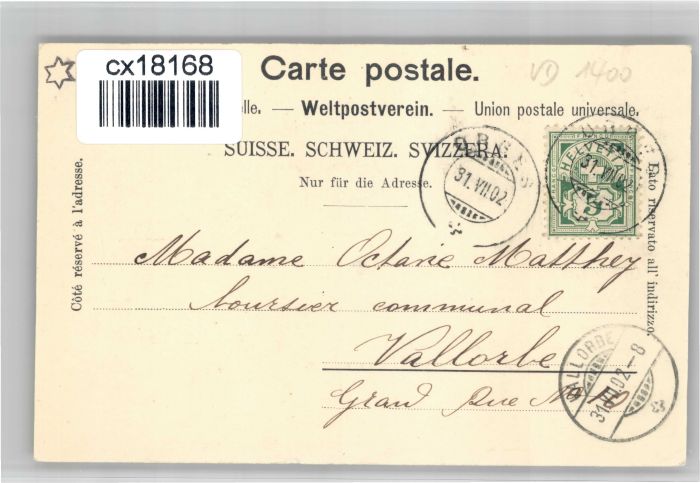 cx18168
VD 1400
Carte postale.
elle. — Weltpostverein. — Union postale universale.
SUISSE. SCHWEIZ. SVIZZERA.
Nur für die Adresse.
Côté réservé à l'adresse.
Lato riservato all' indirizzo.
31.VII.02
HELVETIA
31.VII.02
5
Madame Octavie Matthey
boursier communal
Vallorbe
Grand Rue No 10
VALLORBE
31.VII.02-8